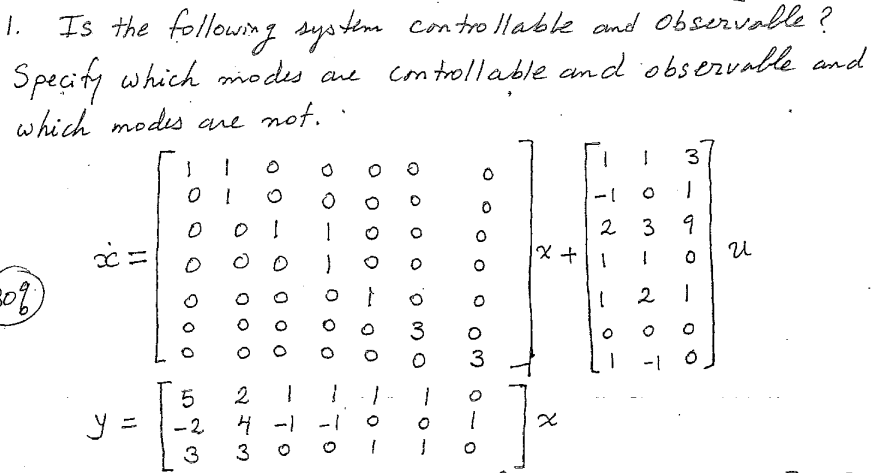 1. Is the following system controllable and observable?
Specify which modes are controllable and observable and
which modes are not.
1 1 0 0 0 0 0 1 1 3
0 1 0 0 0 0 0 -1 0 1
0 0 1 1 0 0 0 2 3 9
ẋ = 0 0 0 1 0 0 0 x + 1 1 0 u
0 0 0 0 1 0 0 1 2 1
0 0 0 0 0 3 0 0 0 0
0 0 0 0 0 0 3 1 -1 0
5 2 1 1 1 1 0
y = -2 4 -1 -1 0 0 1 x
3 3 0 0 1 1 0